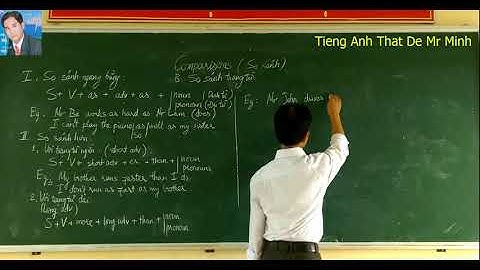 Tieng Anh That De Mr Minh
Comparisons (So sánh)
B. So sánh trạng từ
I. So sánh ngang bằng:
S + V + as + adv + as + noun (Danh từ)
pronoun (Đại từ)
Eg: Mr Ba works as hard as Mr Lam (does)
I can't play the piano as well as my sister
II. So sánh hơn:
1. Với trạng từ ngắn (short adv):
S + V + short adv + er + than + noun
pronouns
Eg: My brother runs faster than I do
I don't run as fast as my brother
2. Với trạng từ dài
(long adv)
S + V + more + long adv + than + noun
pronoun
Eg: Mr John drives